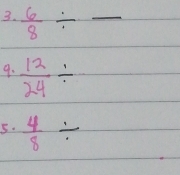 3. 6/8 ÷ —
9. 12/24 ÷
5. 4/8 ÷